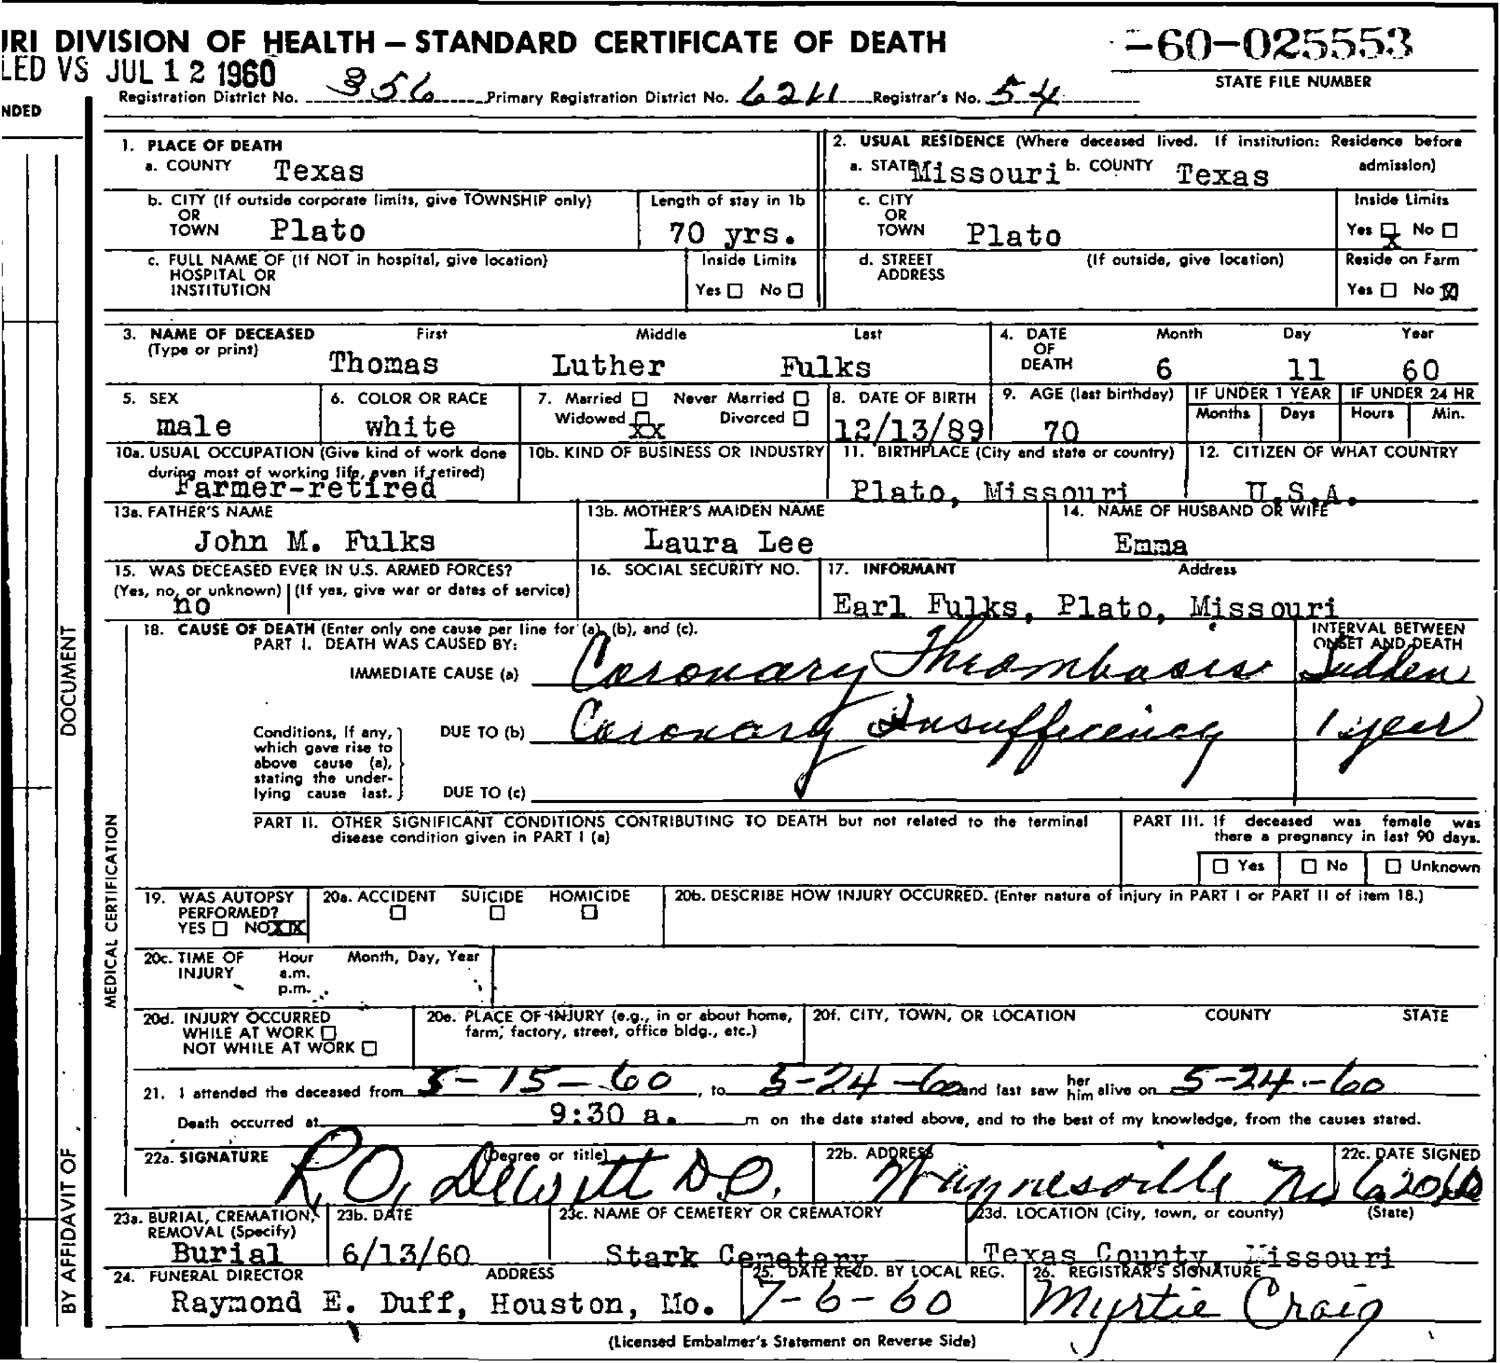 URI DIVISION OF HEALTH — STANDARD CERTIFICATE OF DEATH
-60-025553
STATE FILE NUMBER
LED VS JUL 12 1960
Registration District No. 356 Primary Registration District No. 6211 Registrar's No. 54
NDED
1. PLACE OF DEATH
a. COUNTY Texas
2. USUAL RESIDENCE (Where deceased lived. If institution: Residence before admission)
a. STATE Missouri b. COUNTY Texas
b. CITY (If outside corporate limits, give TOWNSHIP only)
OR
TOWN Plato
Length of stay in 1b
70 yrs.
c. CITY
OR
TOWN Plato
Inside Limits
Yes ☒ No ☐
c. FULL NAME OF (If NOT in hospital, give location)
HOSPITAL OR
INSTITUTION
Inside Limits
Yes ☐ No ☐
d. STREET
ADDRESS
(If outside, give location)
Reside on Farm
Yes ☐ No ☒
3. NAME OF DECEASED First Middle Last
(Type or print)
Thomas Luther Fulks
4. DATE Month Day Year
OF
DEATH 6 11 60
5. SEX
male
6. COLOR OR RACE
white
7. Married ☐ Never Married ☐
Widowed ☐ Divorced ☐
XX
8. DATE OF BIRTH
12/13/89
9. AGE (last birthday)
70
IF UNDER 1 YEAR
Months Days
IF UNDER 24 HR
Hours Min.
10a. USUAL OCCUPATION (Give kind of work done
during most of working life, even if retired)
Farmer-retired
10b. KIND OF BUSINESS OR INDUSTRY
11. BIRTHPLACE (City and state or country)
Plato, Missouri
12. CITIZEN OF WHAT COUNTRY
U.S.A.
13a. FATHER'S NAME
John M. Fulks
13b. MOTHER'S MAIDEN NAME
Laura Lee
14. NAME OF HUSBAND OR WIFE
Emma
15. WAS DECEASED EVER IN U.S. ARMED FORCES?
(Yes, no, or unknown) (If yes, give war or dates of service)
no
16. SOCIAL SECURITY NO.
17. INFORMANT Address
Earl Fulks, Plato, Missouri
18. CAUSE OF DEATH (Enter only one cause per line for (a), (b), and (c).
PART I. DEATH WAS CAUSED BY:
INTERVAL BETWEEN
ONSET AND DEATH
IMMEDIATE CAUSE (a) Coronary Thrombosis Sudden
Conditions, if any,
which gave rise to
above cause (a),
stating the under-
lying cause last.
DUE TO (b) Coronary Insufficiency 1 year
DUE TO (c)
PART II. OTHER SIGNIFICANT CONDITIONS CONTRIBUTING TO DEATH but not related to the terminal
disease condition given in PART I (a)
PART III. If deceased was female was
there a pregnancy in last 90 days.
☐ Yes ☐ No ☐ Unknown
19. WAS AUTOPSY
PERFORMED?
YES ☐ NO XX
20a. ACCIDENT SUICIDE HOMICIDE
☐ ☐ ☐
20b. DESCRIBE HOW INJURY OCCURRED. (Enter nature of injury in PART I or PART II of item 18.)
20c. TIME OF Hour Month, Day, Year
INJURY a.m.
p.m.
20d. INJURY OCCURRED
WHILE AT WORK ☐
NOT WHILE AT WORK ☐
20e. PLACE OF INJURY (e.g., in or about home,
farm, factory, street, office bldg., etc.)
20f. CITY, TOWN, OR LOCATION COUNTY STATE
21. I attended the deceased from 5-15-60, to 5-24-60 and last saw her him alive on 5-24-60
Death occurred at 9:30 a. m on the date stated above, and to the best of my knowledge, from the causes stated.
22a. SIGNATURE (Degree or title)
R.O. DeWitt D.O.
22b. ADDRESS
Waynesville Mo
22c. DATE SIGNED
6/20/60
23a. BURIAL, CREMATION,
REMOVAL (Specify)
Burial
23b. DATE
6/13/60
23c. NAME OF CEMETERY OR CREMATORY
Stark Cemetery
23d. LOCATION (City, town, or county) (State)
Texas County, Missouri
24. FUNERAL DIRECTOR ADDRESS
Raymond E. Duff, Houston, Mo.
25. DATE RECD. BY LOCAL REG.
7-6-60
26. REGISTRAR'S SIGNATURE
Myrtie Craig
(Licensed Embalmer's Statement on Reverse Side)
DOCUMENT
BY AFFIDAVIT OF
MEDICAL CERTIFICATION